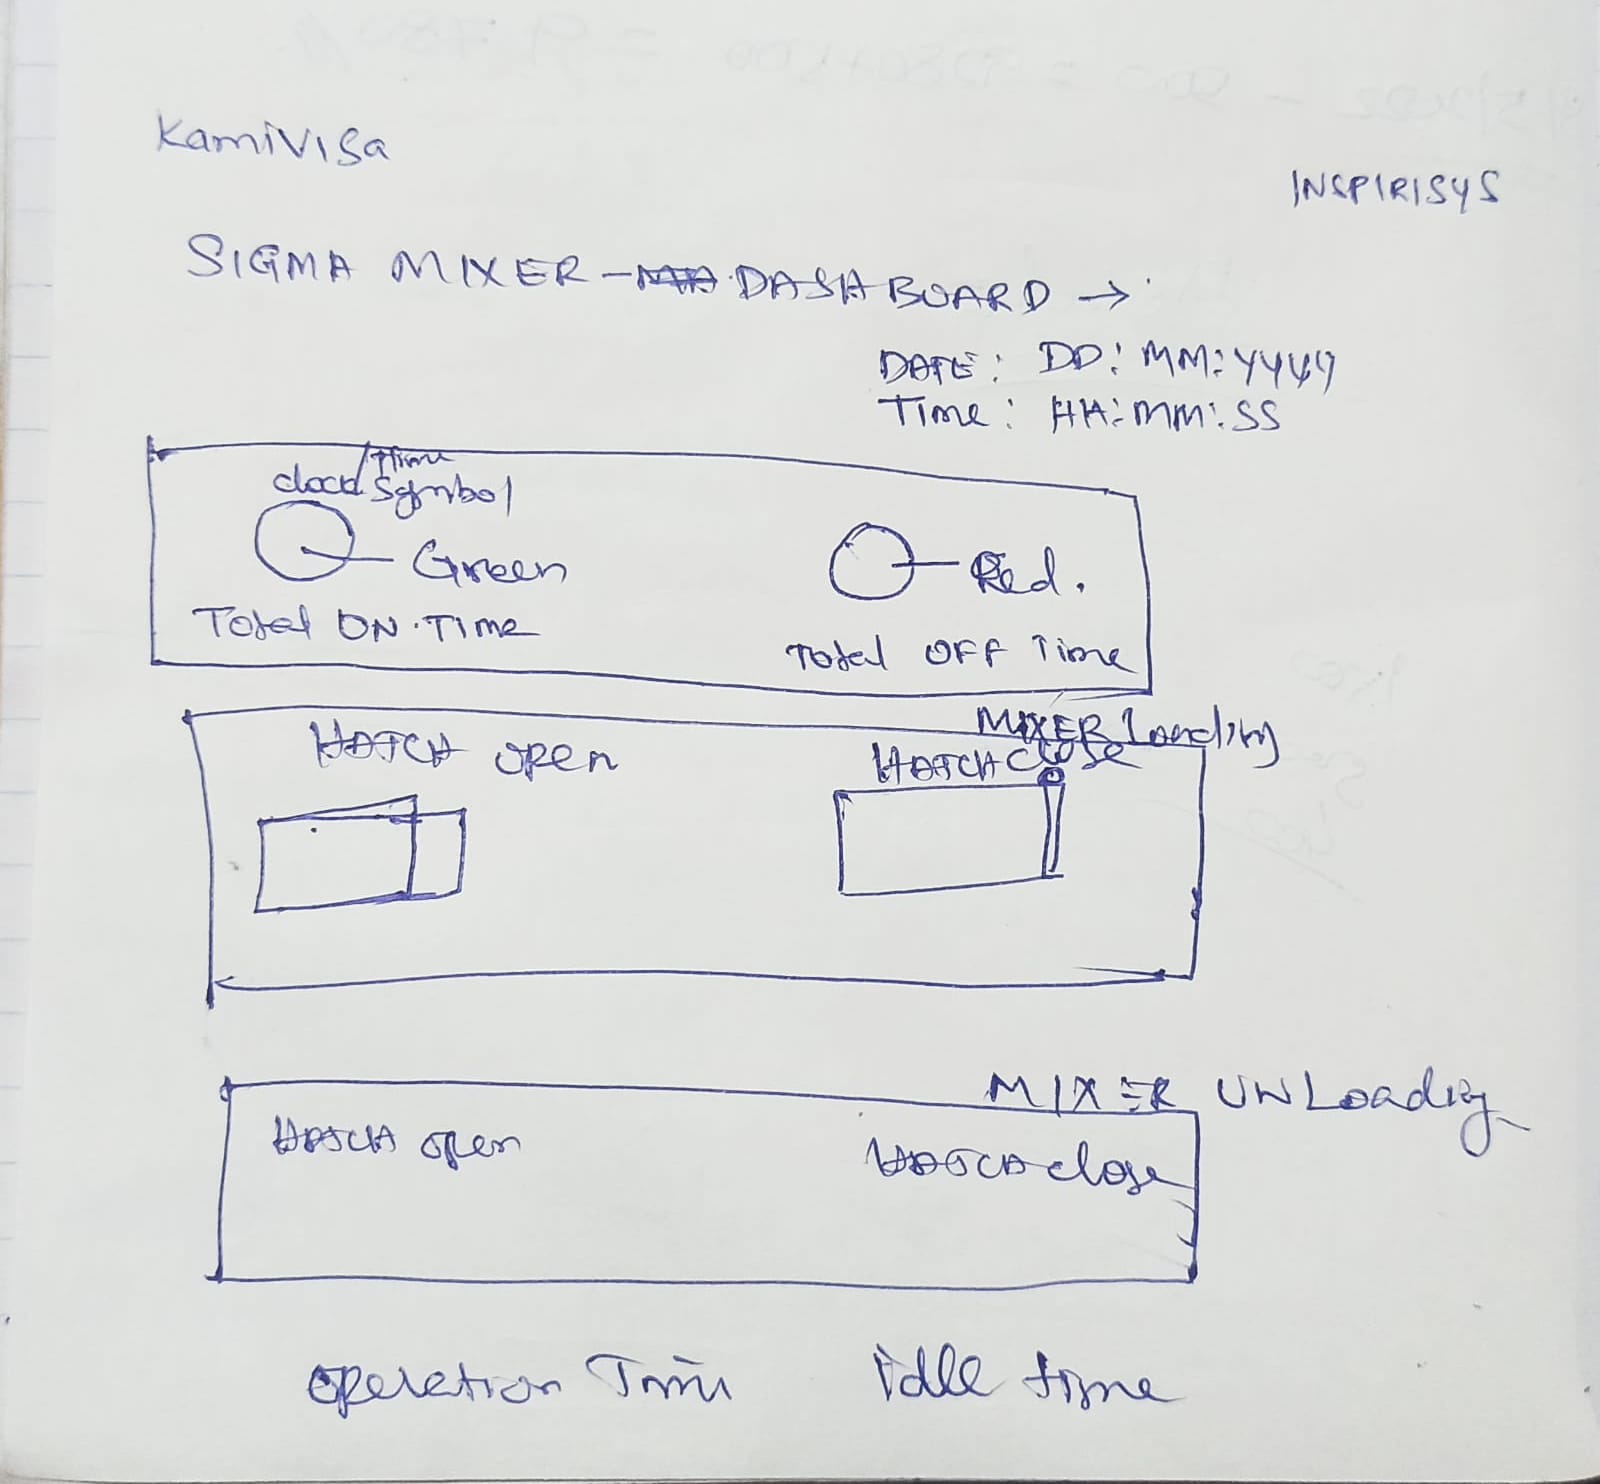 KamiVisa
INSPIRISYS
SIGMA MIXER - DASHBOARD →
DATE: DD: MM: YYYY
Time: HH: MM: SS
clock/Time Symbol
Green
Red.
Total ON.TIME
Total OFF Time
MIXER Loading
HATCH OPEN
HATCH Close
MIXER UNLoading
HATCH open
HATCH close
operation Time
idle time